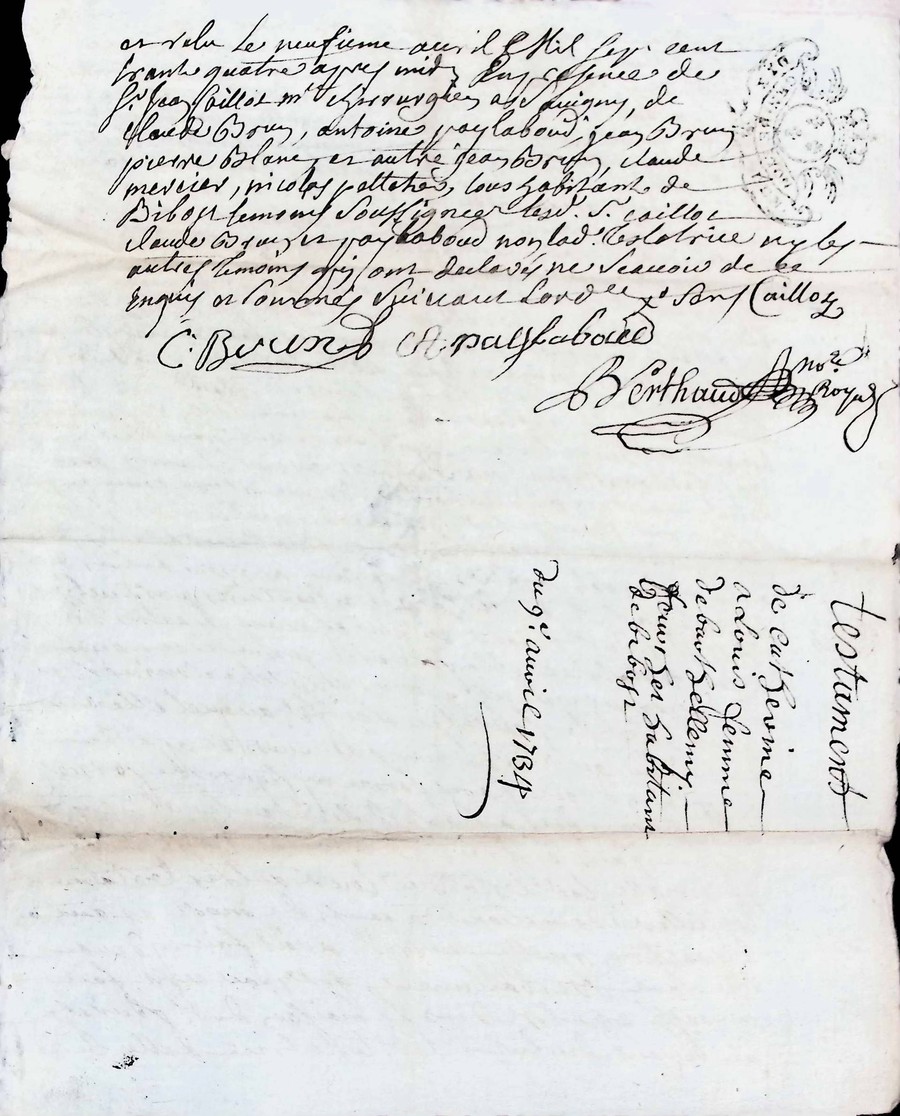 et relu le neufieme avril Mil sept cent
trante quatre apres midy En presence de
Sr. Jean Caillot mt. chirurgien a Savigny, de
claude Brun, antoine paylaboud, jean Brun
pierre Blanc, et autre jean Brun, claude
mercier, nicolas , tous habitant de
Bibost temoins soussignee lesd. Sr. caillot
claude Brun et paylaboud non lad. testatrice ny les
autres temoins qui ont declarés ne scavoir de ce
Enquis et sommés suivant Lord.ee Caillot
C. Brun A paylaboud
Berthaud no.re Royal
testament
de catherine
a Louis femme
de barthellemy
habitant
de bibost
du 9e. avril 1734